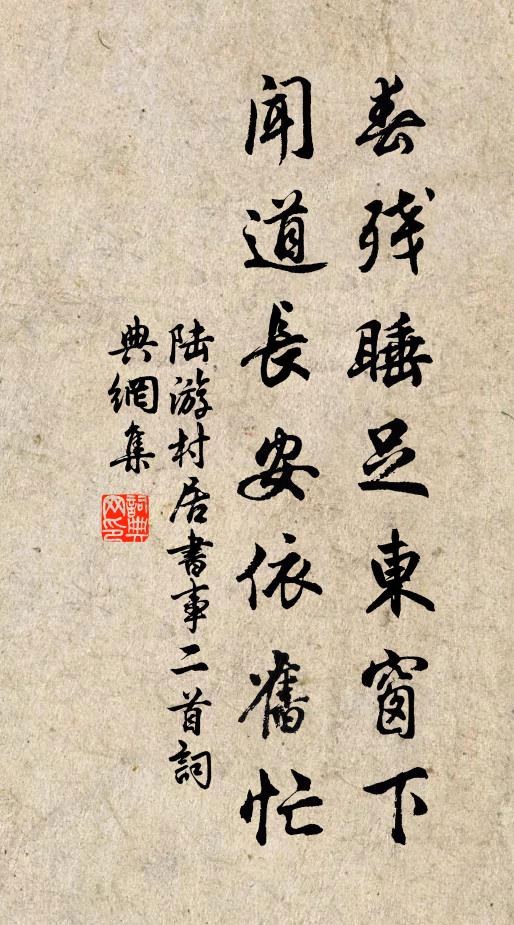 春殘睡足東窗下
聞道長安依舊忙
陸游村居書事二首詞
典網集
詞典網印